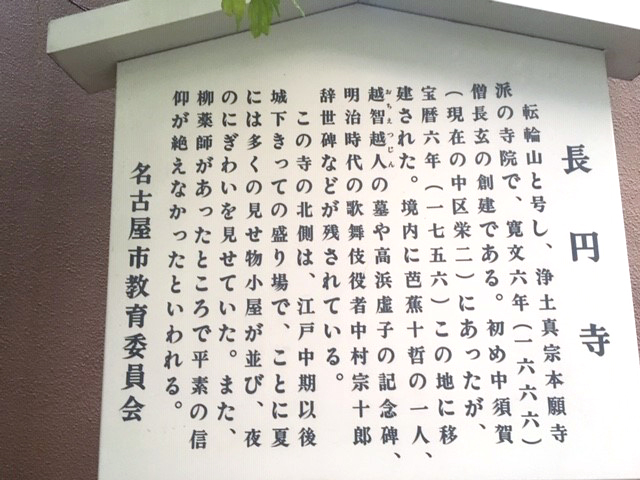 長円寺
転輪山と号し、浄土真宗本願寺
派の寺院で、寛文六年(一六六六)
僧長玄の創建である。初め中須賀
(現在の中区栄二)にあったが、
宝暦六年(一七五六)この地に移
建された。境内に芭蕉十哲の一人、
越智越人の墓や高浜虚子の記念碑、
おちえつじん
明治時代の歌舞伎役者中村宗十郎
辞世碑などが残されている。
この寺の北側は、江戸中期以後
城下きっての盛り場で、ことに夏
には多くの見せ物小屋が並び、夜
のにぎわいを見せていた。また、
柳薬師があったところで平素の信
仰が絶えなかったといわれる。
名古屋市教育委員会